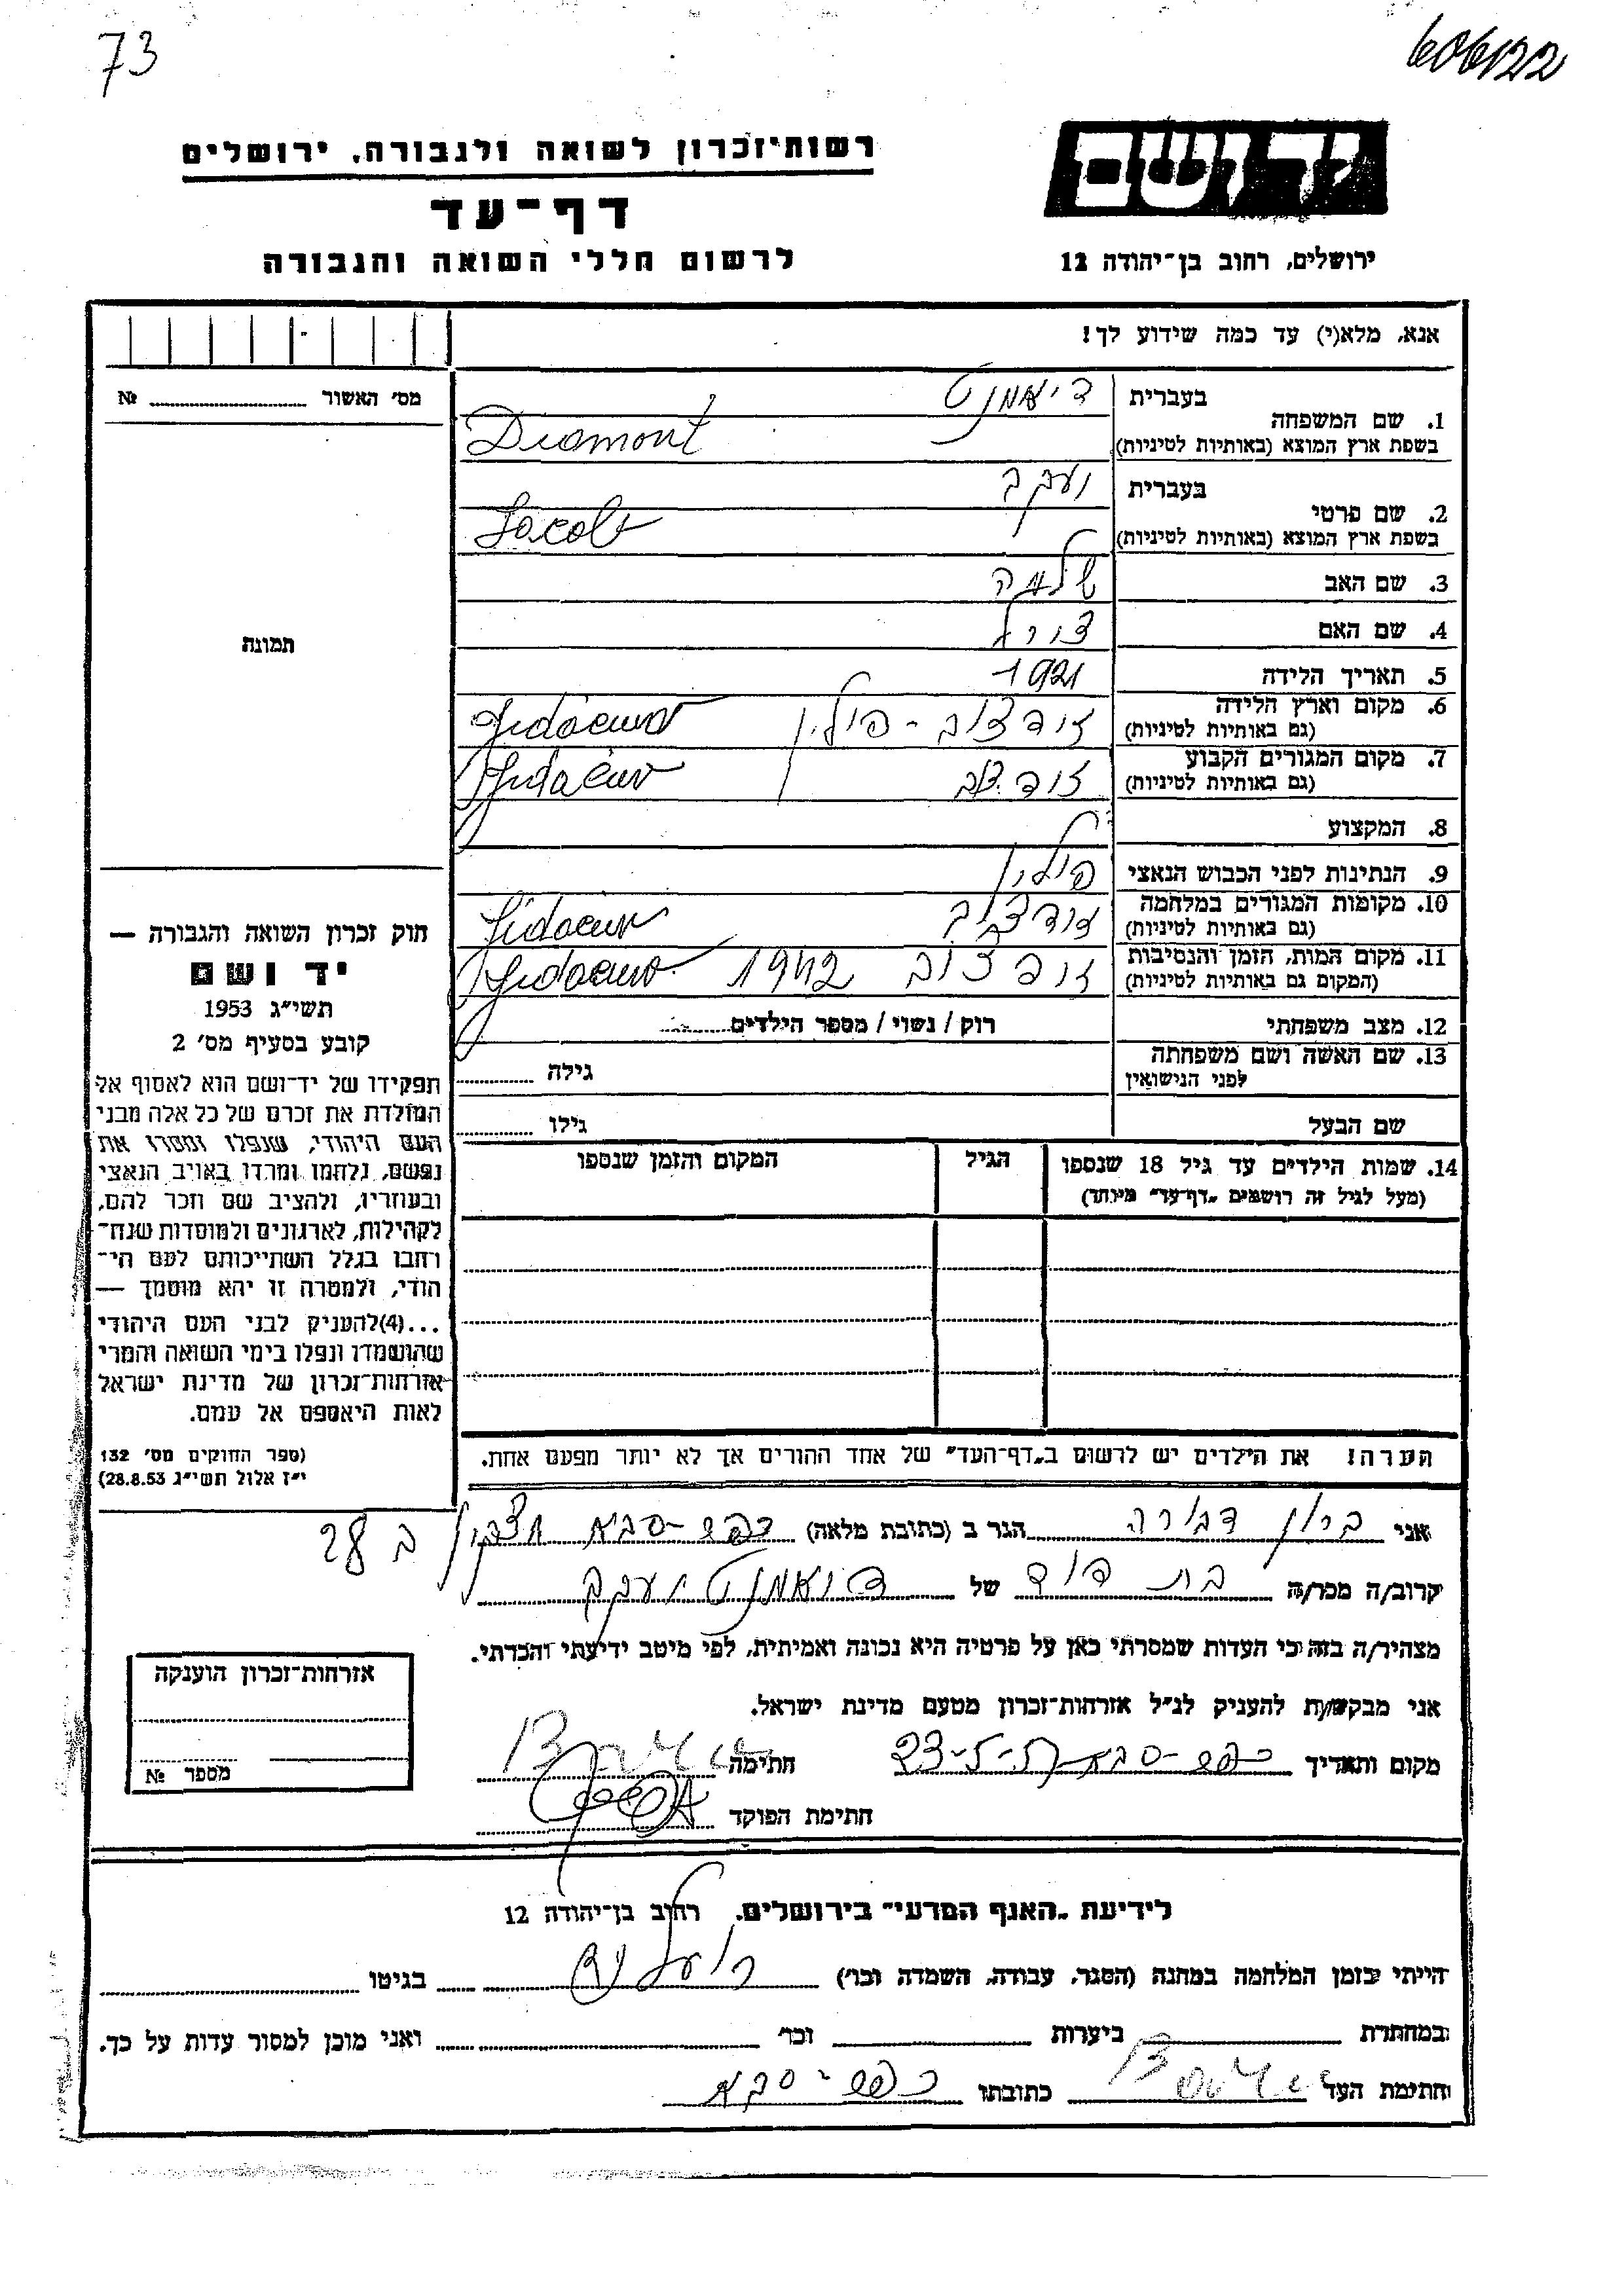 73
606122
רשות־זכרון לשואה ולגבורה, ירושלים
דף־עד
לרשום חללי השואה והגבורה
יד ושם
ירושלים, רחוב בן־יהודה 12
אנא, מלא(י) עד כמה שידוע לך!
מס׳ האשור № 
תמונה
1. שם המשפחה בעברית דיאמנט
בשפת ארץ המוצא (באותיות לטיניות) Diamont
2. שם פרטי בעברית יעקב
בשפת ארץ המוצא (באותיות לטיניות) Jacob
3. שם האב שלמה
4. שם האם
5. תאריך הלידה 1921
6. מקום וארץ הלידה (גם באותיות לטיניות) פולין
7. מקום המגורים הקבוע (גם באותיות לטיניות)
8. המקצוע
9. הנתינות לפני הכבוש הנאצי פולין
10. מקומות המגורים במלחמה (גם באותיות לטיניות)
11. מקום המות, הזמן והנסיבות (המקום גם באותיות לטיניות) 1942
12. מצב משפחתי רוק / נשוי / מספר הילדים
13. שם האשה ושם משפחתה לפני הנישואין גילה
שם הבעל גילו
14. שמות הילדים עד גיל 18 שנספו הגיל המקום והזמן שנספו
(מעל לגיל זה רושמים „דף־עד” מיוחד)
הערה! את הילדים יש לרשום ב„דף־העד” של אחד ההורים אך לא יותר מפעם אחת.
חוק זכרון השואה והגבורה —
יד ושם
תשי״ג 1953
קובע בסעיף מס׳ 2
תפקידו של יד־ושם הוא לאסוף אל
המולדת את זכרם של כל אלה מבני
העם היהודי, שנפלו ומסרו את
נפשם, נלחמו ומרדו באויב הנאצי
ובעוזריו, ולהציב שם וזכר להם,
לקהילות, לארגונים ולמוסדות שנח־
רבו בגלל השתייכותם לעם הי־
הודי, ולמטרה זו יהא מוסמך —
...(4)להעניק לבני העם היהודי
שהושמדו ונפלו בימי השואה והמרי
אזרחות־זכרון של מדינת ישראל
לאות היאספם אל עמם.
(ספר החוקים מס׳ 132
י״ז אלול תשי״ג 28.8.53)
אני דבורה הגר ב (כתובת מלאה) כפר-סבא 28
קרוב/ה מכר/ה בת דוד של דיאמנט יעקב
מצהיר/ה בזה כי העדות שמסרתי כאן על פרטיה היא נכונה ואמיתית, לפי מיטב ידיעתי והכרתי.
אני מבקש/ת להעניק לנ״ל אזרחות־זכרון מטעם מדינת ישראל.
מקום ותאריך כפר-סבא 23-5-57 חתימה
חתימת הפוקד
אזרחות־זכרון הוענקה
מספר №
לידיעת „האגף המדעי” בירושלים, רחוב בן־יהודה 12
הייתי בזמן המלחמה במחנה (הסגר, עבודה, השמדה וכו׳) בגיטו
במחתרת ביערות וכו׳ ואני מוכן למסור עדות על כך.
חתימת העד כתובתו כפר-סבא